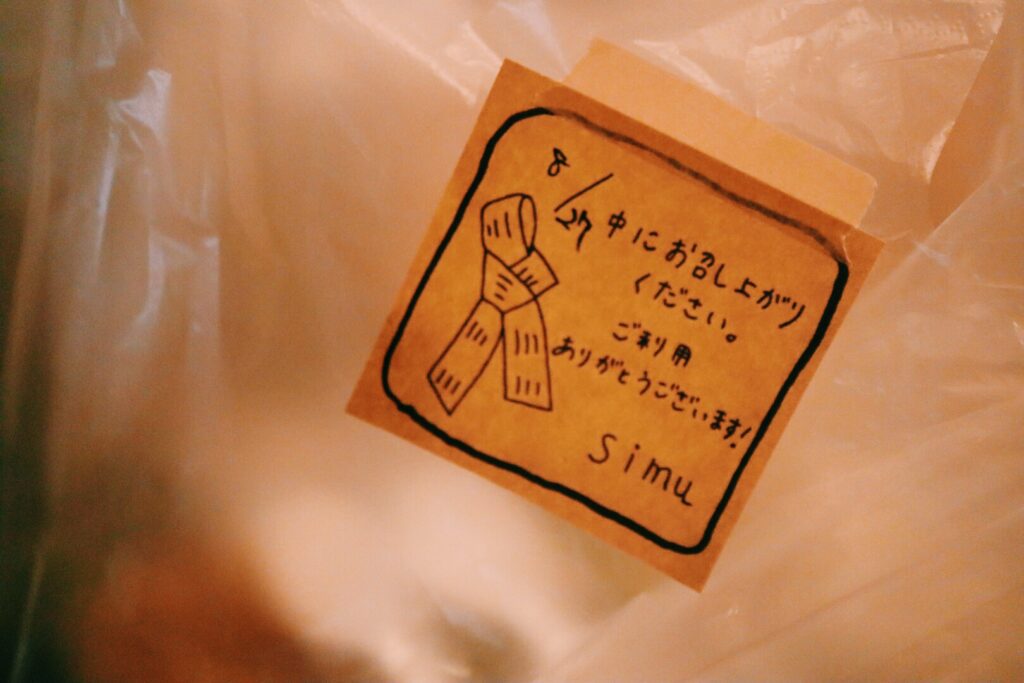 8/27中にお召し上がり
ください。
ご利用
ありがとうございます!
simu